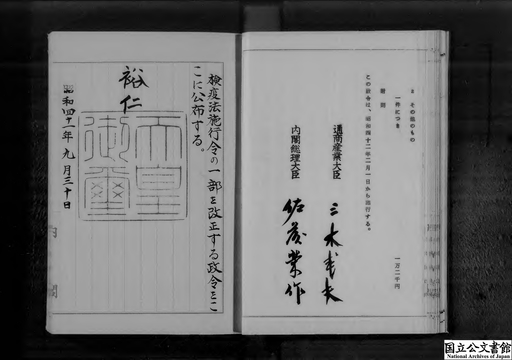 2 その他のもの
一件につき 一万二千円
附則
この政令は、昭和四十二年二月一日から施行する。
通商産業大臣 三木武夫
内閣総理大臣 佐藤榮作
検疫法施行令の一部を改正する政令をこ
こに公布する。
裕仁
天皇
御璽
昭和四十一年九月三十日
国立公文書館
National Archives of Japan